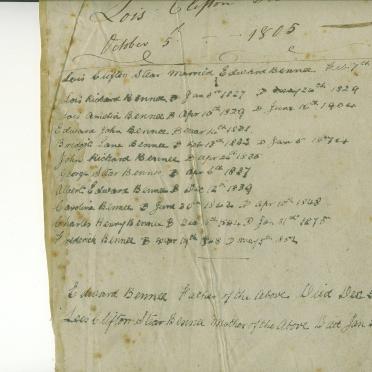 Lois Clifton
October 5th 1805
Lois Clifton Star Married Edward Bennee Feb 7th
Lois Richard Bennee B Jan 5th 1827 D May 24th 1829
Lois Amelia Bennee B Apr 10th 1829 D June 16th 1904
Edward John Bennee B Mar 14th 1831
Bridget Jane Bennee B Feb 13th 1833 D Jan 5th
John Richard Bennee B Apr 24th 1835
George Star Bennee B Apr 6th 1837
Albert Edward Bennee B Dec 12th 1839
Caroline Bennee B June 20th 1842 D Apr 10th 1843
Charles Henry Bennee B Dec 1844 D Jan 31th 1875
Frederick Bennee B Mar 19th 1848 D May 5th 1852
Edward Bennee Father of the Above Died Dec
Lois Clifton Star Bennee Mother of the Above Died Jan